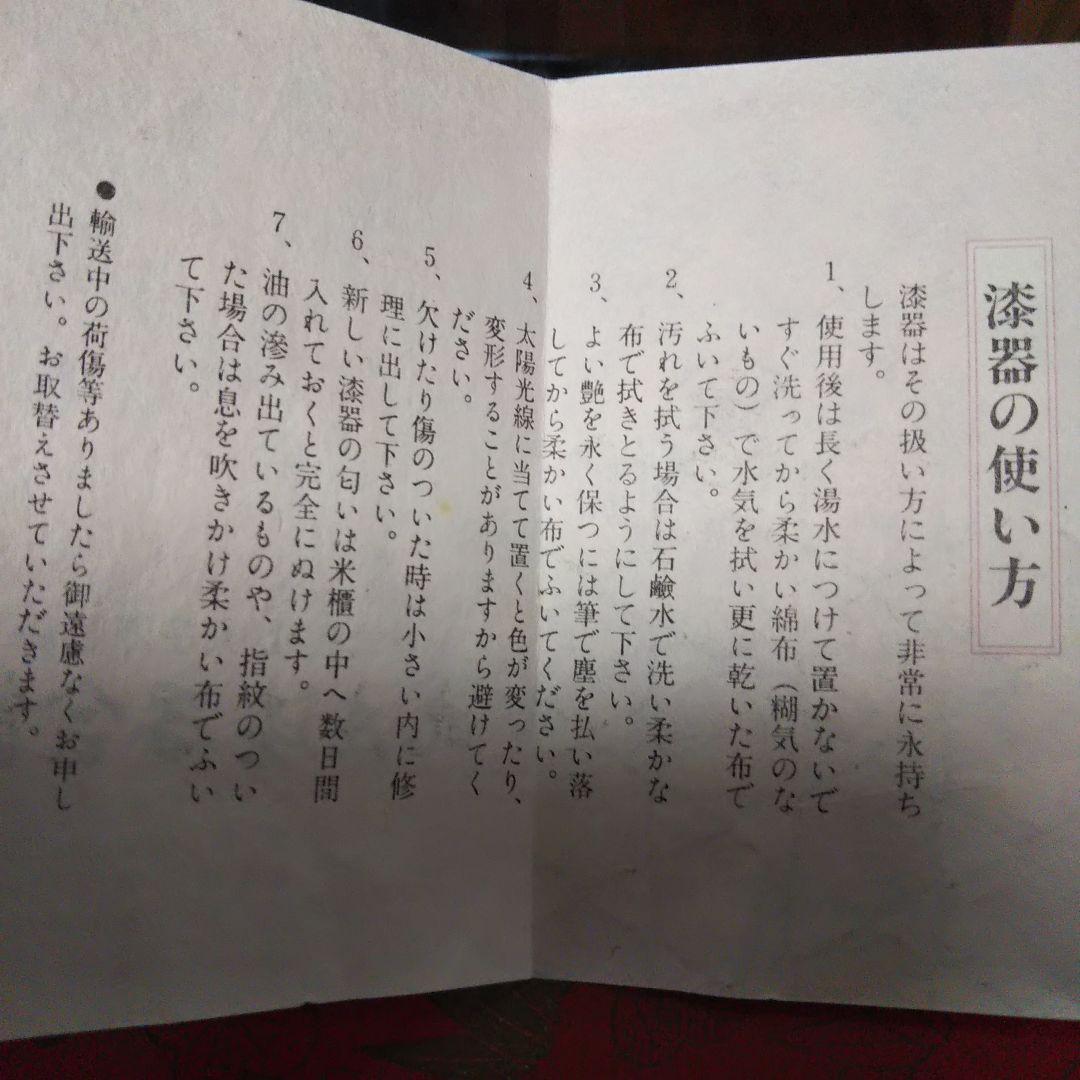 漆器の使い方
漆器はその扱い方によって非常に永持ち
します。
1、使用後は長く湯水につけて置かないで
すぐ洗ってから柔かい綿布（糊気のな
いもの）で水気を拭い更に乾いた布で
ふいて下さい。
2、汚れを拭う場合は石鹼水で洗い柔かな
布で拭きとるようにして下さい。
3、よい艶を永く保つには筆で塵を払い落
してから柔かい布でふいてください。
4、太陽光線に当てて置くと色が変ったり、
変形することがありますから避けてく
ださい。
5、欠けたり傷のついた時は小さい内に修
理に出して下さい。
6、新しい漆器の匂いは米櫃の中へ数日間
入れておくと完全にぬけます。
7、油の滲み出ているものや、指紋のつい
た場合は息を吹きかけ柔かい布でふい
て下さい。
●輸送中の荷傷等ありましたら御遠慮なくお申し
出下さい。お取替えさせていただきます。